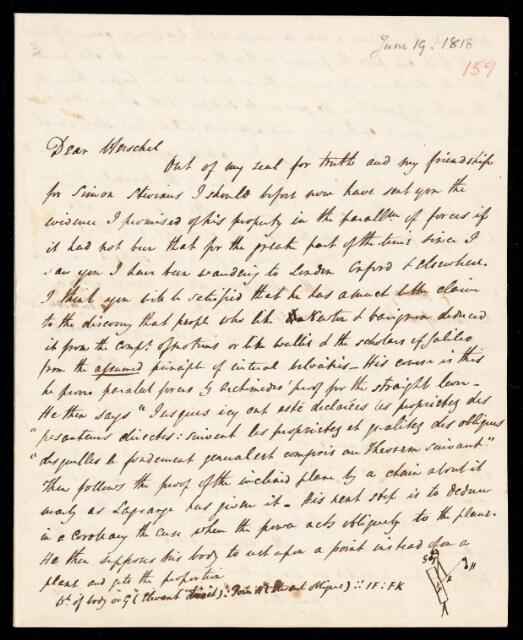 June 19. 1818
159
Dear Herschel
Out of my zeal for truth and my friendship
for Simon Stevinus I should before now have sent you the
evidence I promised of his property in the parallm of forces if
it had not been that for the great part of the time since I
saw you I have been wandering to London Oxford & elsewhere.
I think you will be satisfied that he has a much better claim
to the discovery than people who like Newton & Varignon deduced
it from the compn. of motions or like Wallis & the scholars of Galileo
from the assumed principle of virtual velocities – His course is this
he proves parallel forces by Archimedes' proof for the straight lever –
He then says "Jusques icy ont esté declairées les proprietez des
" pesanteurs directes: suivent les proprietez et qualitez des obliques
" desquelles le fondement general est compris au Theorem suivant."
Then follows the proof of the inclined plane by a chain about it
nearly as Lagrange has given it – His next step is to deduce
in a corollary the case when the power acts obliquely to the plane.
He then supposes this body to rest upon a point instead of on a
plane and gets the proportion
Wt. of body or G (elevant direct): Power H (elevant oblique) :: IF : FK